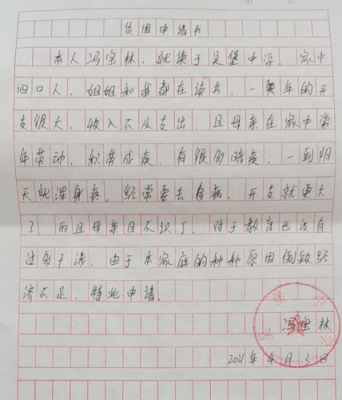 贫困申请书
本人冯宝林,就读于吴堡中学,家中
四口人,姐姐和我都在读书,一年的开
支很大,收入不及支出,且母亲在家中常
年劳动,积劳成疾,有很多暗疾,一到阴
天就浑身疼,经常要去看病,开支就更大
了,而且母亲目不识丁,对于教育也没有
过多干涉,由于本家庭的种种原因倒致经
济不足,特此申请。
冯宝林
2021年4月3日